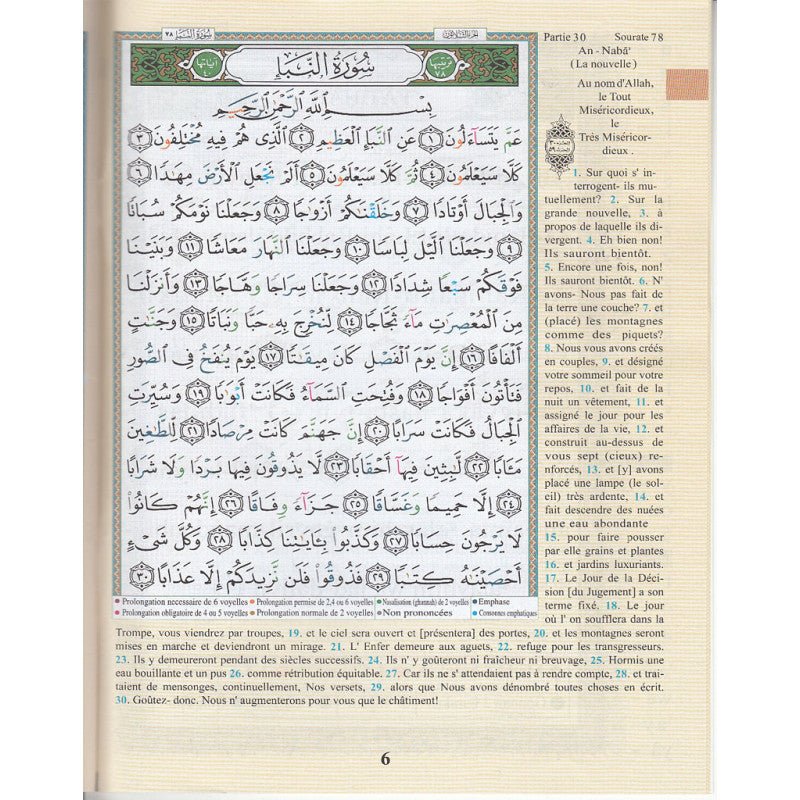 سورة النبإ ٧٨
الجزء الثلاثون
Partie 30 Sourate 78
An - Nabâ'
(La nouvelle)
آياتها ٤٠
سُورَةُ النَّبَإِ
ترتيبها ٧٨
بِسْمِ ٱللَّهِ ٱلرَّحْمَٰنِ ٱلرَّحِيمِ
عَمَّ يَتَسَآءَلُونَ ١ عَنِ ٱلنَّبَإِ ٱلْعَظِيمِ ٢ ٱلَّذِى هُمْ فِيهِ مُخْتَلِفُونَ ٣
كَلَّا سَيَعْلَمُونَ ٤ ثُمَّ كَلَّا سَيَعْلَمُونَ ٥ أَلَمْ نَجْعَلِ ٱلْأَرْضَ مِهَٰدًا ٦
وَٱلْجِبَالَ أَوْتَادًا ٧ وَخَلَقْنَٰكُمْ أَزْوَٰجًا ٨ وَجَعَلْنَا نَوْمَكُمْ سُبَاتًا
٩ وَجَعَلْنَا ٱلَّيْلَ لِبَاسًا ١٠ وَجَعَلْنَا ٱلنَّهَارَ مَعَاشًا ١١ وَبَنَيْنَا
فَوْقَكُمْ سَبْعًا شِدَادًا ١٢ وَجَعَلْنَا سِرَاجًا وَهَّاجًا ١٣ وَأَنزَلْنَا
مِنَ ٱلْمُعْصِرَٰتِ مَآءً ثَجَّاجًا ١٤ لِّنُخْرِجَ بِهِۦ حَبًّا وَنَبَاتًا ١٥ وَجَنَّٰتٍ
أَلْفَافًا ١٦ إِنَّ يَوْمَ ٱلْفَصْلِ كَانَ مِيقَٰتًا ١٧ يَوْمَ يُنفَخُ فِى ٱلصُّورِ
فَتَأْتُونَ أَفْوَاجًا ١٨ وَفُتِحَتِ ٱلسَّمَآءُ فَكَانَتْ أَبْوَٰبًا ١٩ وَسُيِّرَتِ
ٱلْجِبَالُ فَكَانَتْ سَرَابًا ٢٠ إِنَّ جَهَنَّمَ كَانَتْ مِرْصَادًا ٢١ لِّلطَّٰغِينَ
مَـَٔابًا ٢٢ لَّٰبِثِينَ فِيهَآ أَحْقَابًا ٢٣ لَّا يَذُوقُونَ فِيهَا بَرْدًا وَلَا شَرَابًا
٢٤ إِلَّا حَمِيمًا وَغَسَّاقًا ٢٥ جَزَآءً وِفَاقًا ٢٦ إِنَّهُمْ كَانُوا۟
لَا يَرْجُونَ حِسَابًا ٢٧ وَكَذَّبُوا۟ بِـَٔايَٰتِنَا كِذَّابًا ٢٨ وَكُلَّ شَىْءٍ
أَحْصَيْنَٰهُ كِتَٰبًا ٢٩ فَذُوقُوا۟ فَلَن نَّزِيدَكُمْ إِلَّا عَذَابًا ٣٠
Prolongation necessaire de 6 voyelles Prolongation permise de 2,4 ou 6 voyelles Nasalisation (ghannah) de 2 voyelles Emphase
Prolongation obligatoire de 4 ou 5 voyelles Prolongation normale de 2 voyelles Non prononcées Consonnes emphatiques
Au nom d'Allah,
le Tout
Miséricordieux,
le
Très Miséricor-
dieux .
1. Sur quoi s' in-
terrogent- ils mu-
tuellement? 2. Sur la
grande nouvelle, 3. à
propos de laquelle ils di-
vergent. 4. Eh bien non!
Ils sauront bientôt.
5. Encore une fois, non!
Ils sauront bientôt. 6. N'
avons- Nous pas fait de
la terre une couche? 7. et
(placé) les montagnes
comme des piquets?
8. Nous vous avons créés
en couples, 9. et désigné
votre sommeil pour votre
repos, 10. et fait de la
nuit un vêtement, 11. et
assigné le jour pour les
affaires de la vie, 12. et
construit au-dessus de
vous sept (cieux) re-
nforcés, 13. et [y] avons
placé une lampe (le sol-
eil) très ardente, 14. et
fait descendre des nuées
une eau abondante
15. pour faire pousser
par elle grains et plantes
16. et jardins luxuriants.
17. Le Jour de la Déci-
sion [du Jugement] a son
terme fixé. 18. Le jour
où l' on soufflera dans la
Trompe, vous viendrez par troupes, 19. et le ciel sera ouvert et [présentera] des portes, 20. et les montagnes seront
mises en marche et deviendront un mirage. 21. L' Enfer demeure aux aguets, 22. refuge pour les transgresseurs.
23. Ils y demeureront pendant des siècles successifs. 24. Ils n' y goûteront ni fraîcheur ni breuvage, 25. Hormis une
eau bouillante et un pus 26. comme rétribution équitable. 27. Car ils ne s' attendaient pas à rendre compte, 28. et trai-
taient de mensonges, continuellement, Nos versets, 29. alors que Nous avons dénombré toutes choses en écrit.
30. Goûtez- donc. Nous n' augmenterons pour vous que le châtiment!
6